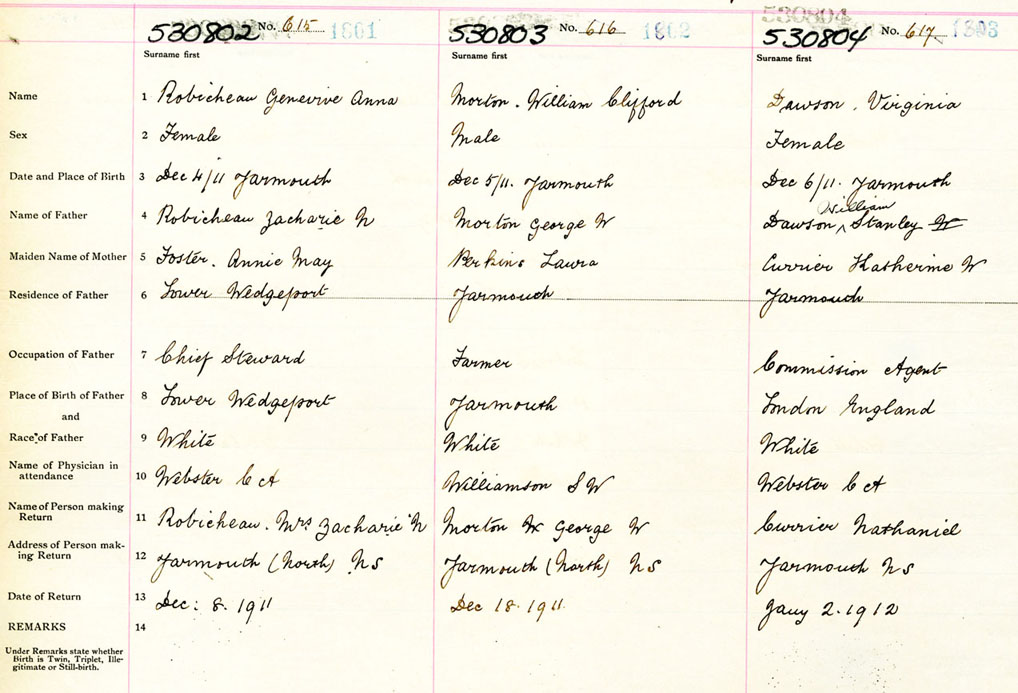 530802 No. 615 1801 530803 No. 616 1802 530804 530804 No. 617 1803
Surname first Surname first Surname first
Name 1 Robicheau Genevive Anna Morton. William Clifford Dawson, Virginia
Sex 2 Female Male Female
Date and Place of Birth 3 Dec 4/11 Yarmouth Dec 5/11. Yarmouth Dec 6/11. Yarmouth
William
Name of Father 4 Robicheau Zacharie N Morton George W Dawson ^ Stanley W
Maiden Name of Mother 5 Foster. Annie May Perkins Laura Currier Katherine W
Residence of Father 6 Lower Wedgeport Yarmouth Yarmouth
Occupation of Father 7 Chief Steward Farmer Commission Agent
Place of Birth of Father 8 Lower Wedgeport Yarmouth London England
and
Race of Father 9 White White White
Name of Physician in
attendance 10 Webster C A Williamson S W Webster C A
Name of Person making
Return 11 Robicheau. Mrs Zacharie N Morton George W Currier Nathaniel
Address of Person mak-
ing Return 12 Yarmouth (North) N S Yarmouth (North) N S Yarmouth N S
Date of Return 13 Dec: 8. 1911 Dec 18. 1911 Jany 2. 1912
REMARKS 14
Under Remarks state whether
Birth is Twin, Triplet, Ille-
gitimate or Still-birth.